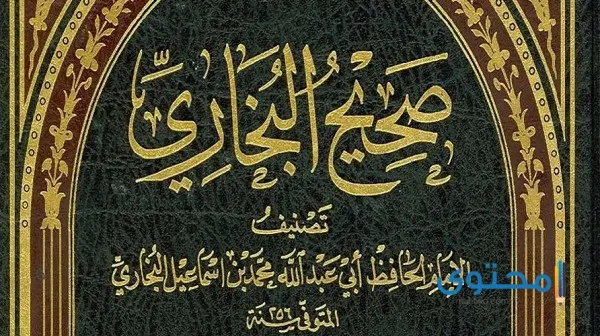 صَحِيحُ البُخَارِيِّ
تَصْنِيفُ
الإمَامِ الحَافِظِ أَبي عَبْدِ اللَّه مُحَمَّدِ بْن اسْمَاعِيل البُخَارِيِّ
المتَوَفّى سَنَة ٢٥٦
محتوى